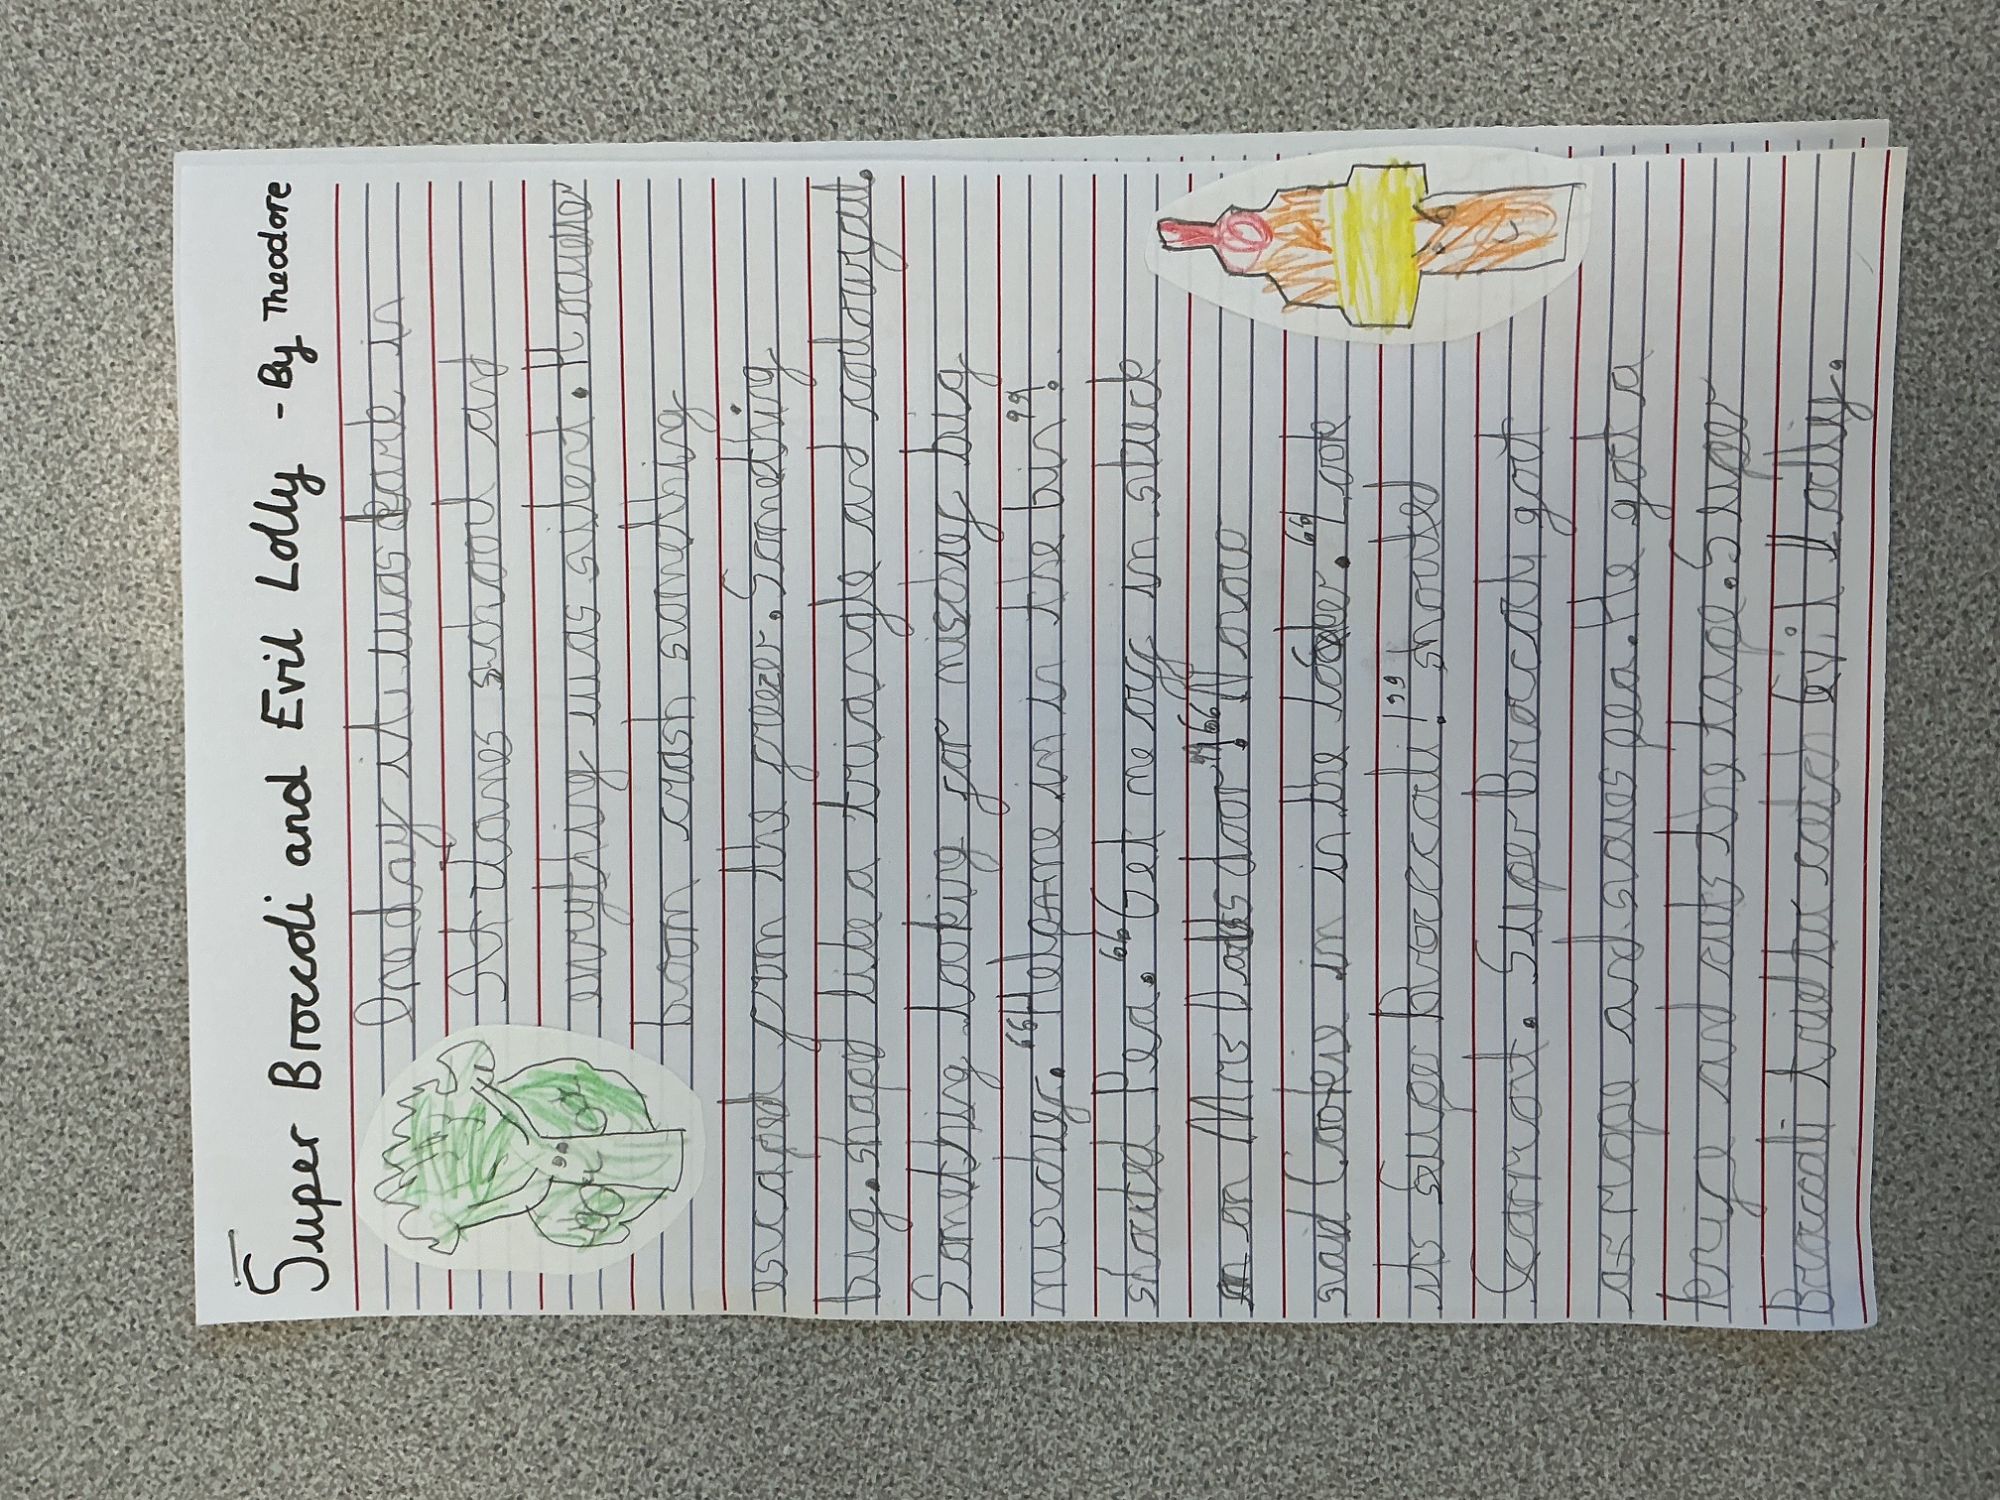 Super Broccoli and Evil Lolly - By Theodore
One day it was dark in
St Joans school and
evrything was silent. However
boom crash something
escaped from the freezer. Something
big. shapd like a triangle and colourful.
Something looking for mischief big
mischief. "Help me im in the bin".
shouted Pea. "Get me ouy im stuck
on Mrs Dabbs door". "Now
said Cookew im in the loder. "Look
its Super Broccoli!" shouted
Carrot. Super Broccoly got
a rope and saves pea. He got a
knife and cuts the tape. Super
Broccoli tried to catch Evil Lolly.